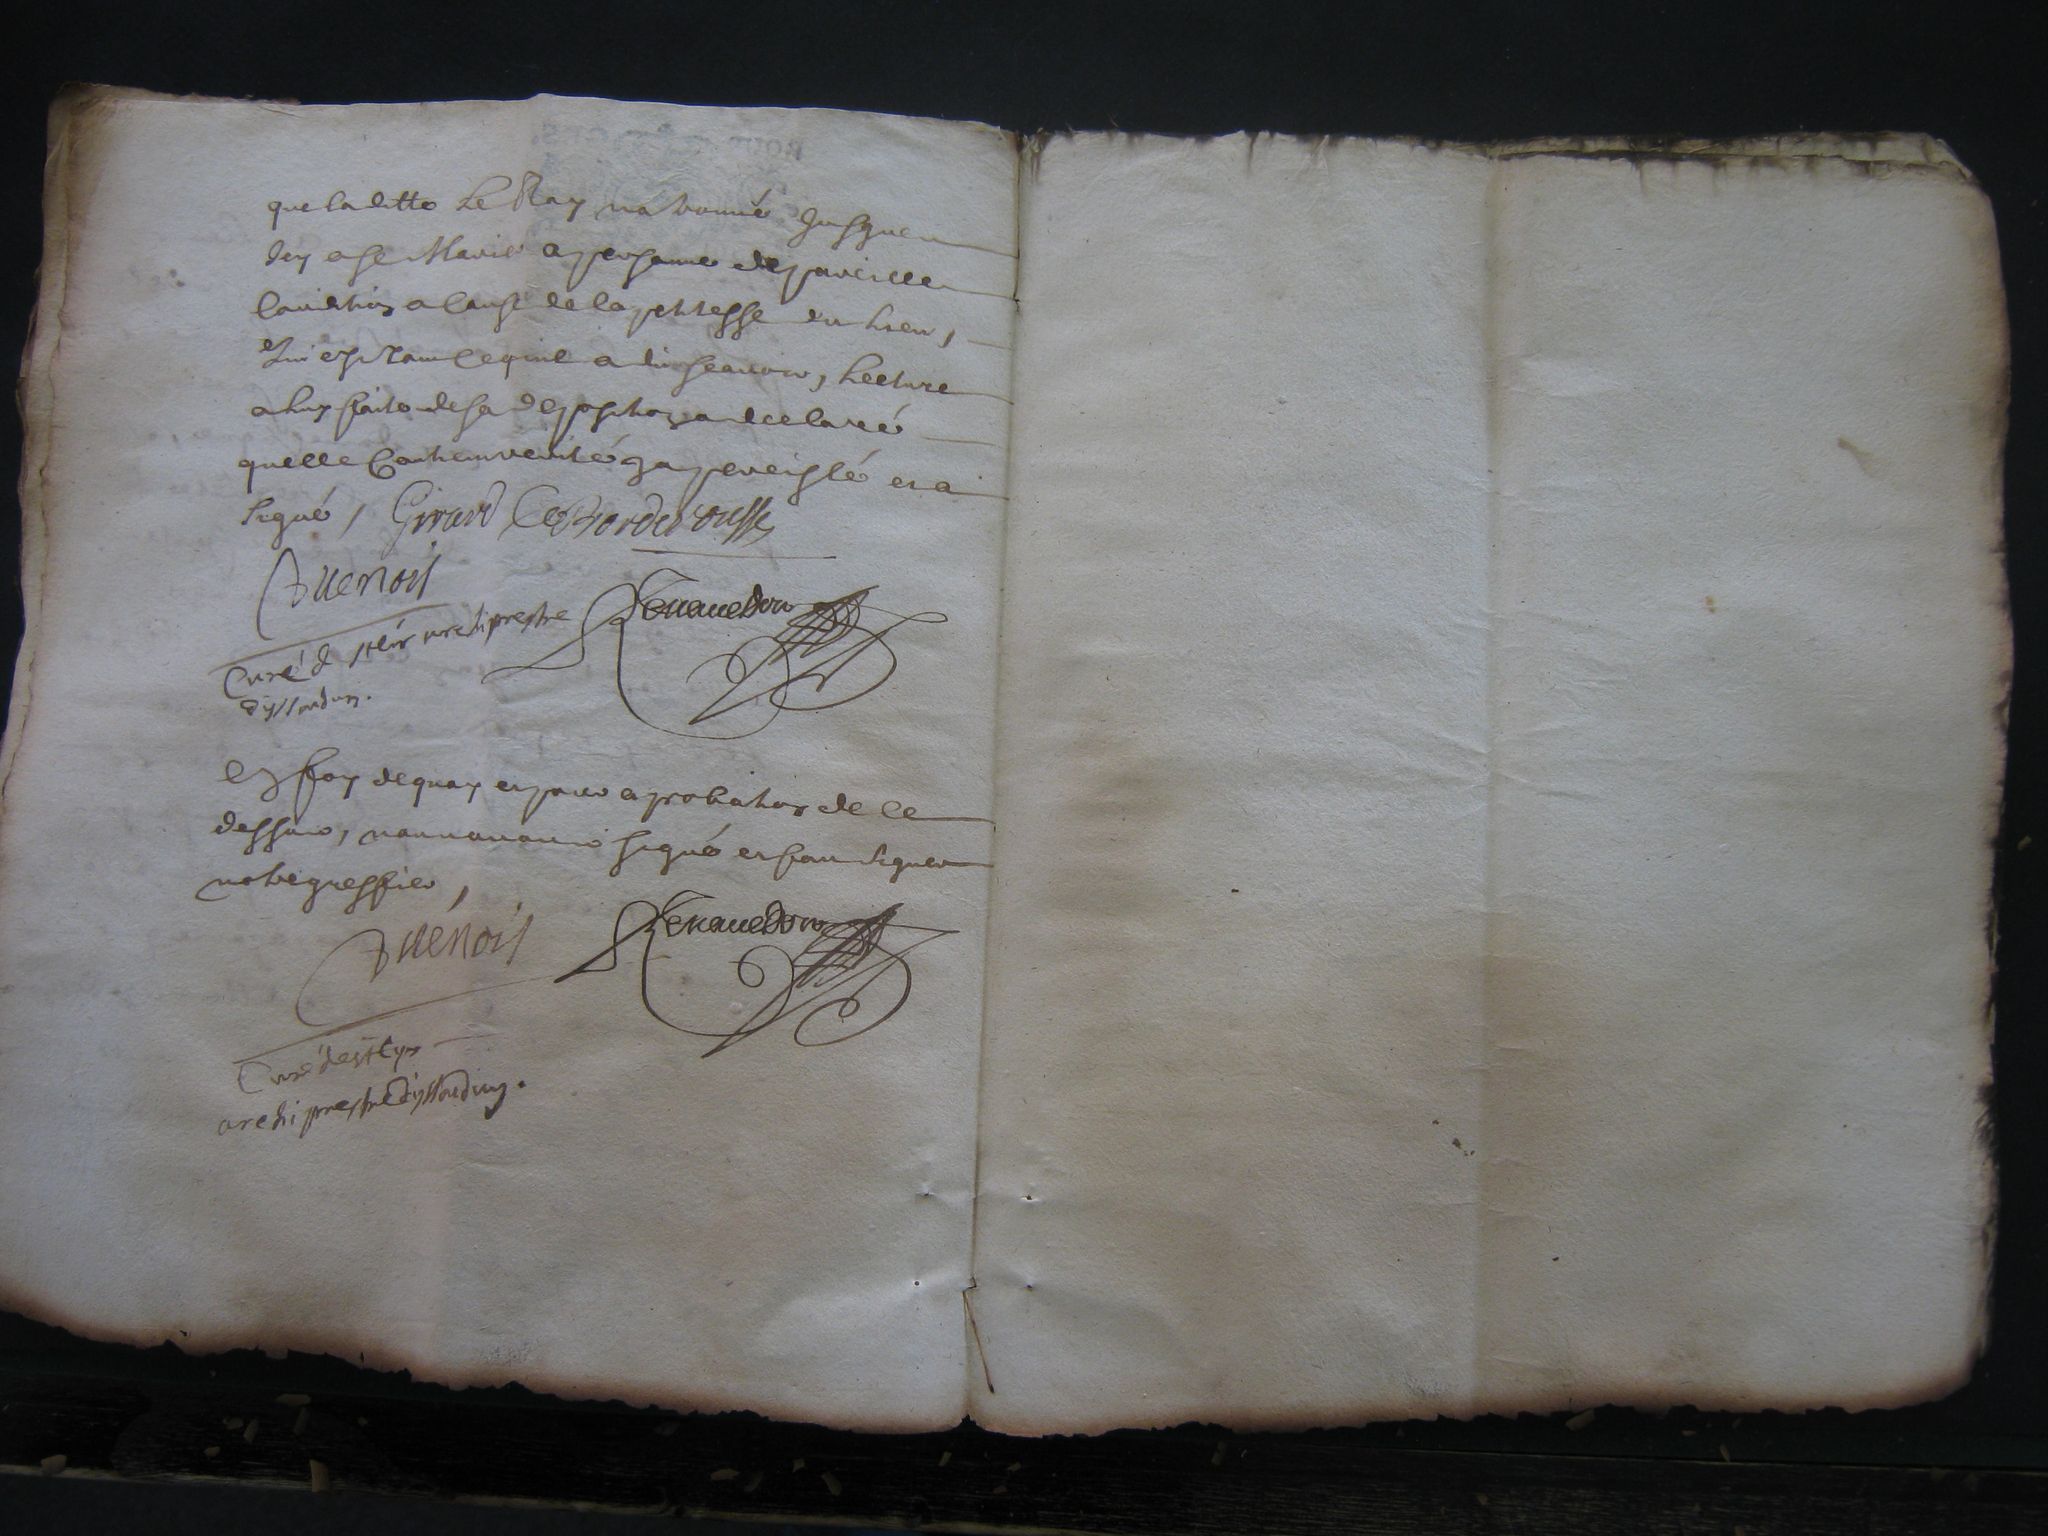 que laditte Le Ray na trouvé Jusques
Icy a se Marier a personne de pareille
Condition a cause de la petitesse du lieu,
Qui est tout ce quil a dit scavoir, Lecture
a luy faite de sa deposition a declaré
quelle Contient verité y a persisté et a
signé, Girard
Guenois
Curé de st Cir archiprestre
dyssoudun.
En foy de quoy et pour aprobation de ce
dessus, nous avons signé et fait signer
notre greffier,
Guenois
Curé de st Cyr
archiprestre dyssoudun.